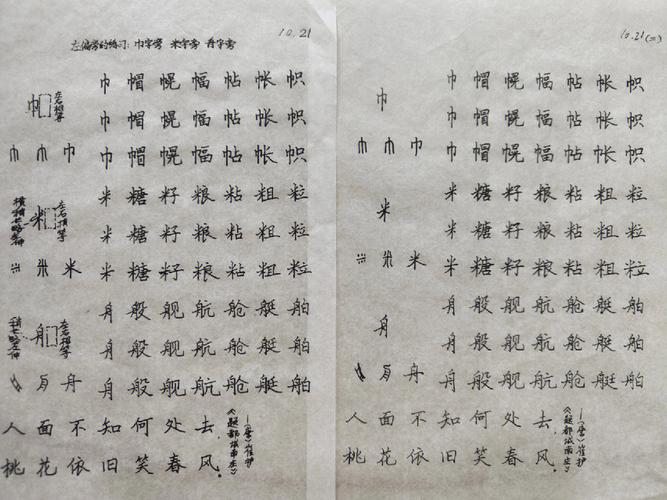 10.21
左偏旁的练习：巾字旁 米字旁 舟字旁
巾 帽 幌 幅 帖 帐 帜
巾 左右相等
巾 帽 幌 幅 帖 帐 帜
巾 巾 巾 巾 帽 幌 幅 帖 帐 帜
米 糖 籽 粮 粘 粗 粒
米 左右相等
横稍长略左伸
米 糖 籽 粮 粘 粗 粒
米 米 糖 籽 粮 粘 粗 粒
舟 般 舰 航 舱 艇 舶
舟 左右相等
舟 般 舰 航 舱 艇 舶
舟 舟 般 舰 航 舱 艇 舶
人 面 不 知 何 处 去，
桃 花 依 旧 笑 春 风。
—（唐）崔护
《题都城南庄》
10.21（二）
巾 帽 幌 幅 帖 帐 帜
巾
巾 帽 幌 幅 帖 帐 帜
巾 巾 巾 巾 帽 幌 幅 帖 帐 帜
米 糖 籽 粮 粘 粗 粒
米
米 糖 籽 粮 粘 粗 粒
米 米 糖 籽 粮 粘 粗 粒
舟 般 舰 航 舱 艇 舶
舟
舟 般 舰 航 舱 艇 舶
舟 舟 般 舰 航 舱 艇 舶
人 面 不 知 何 处 去，
桃 花 依 旧 笑 春 风。
—（唐）崔护
《题都城南庄》